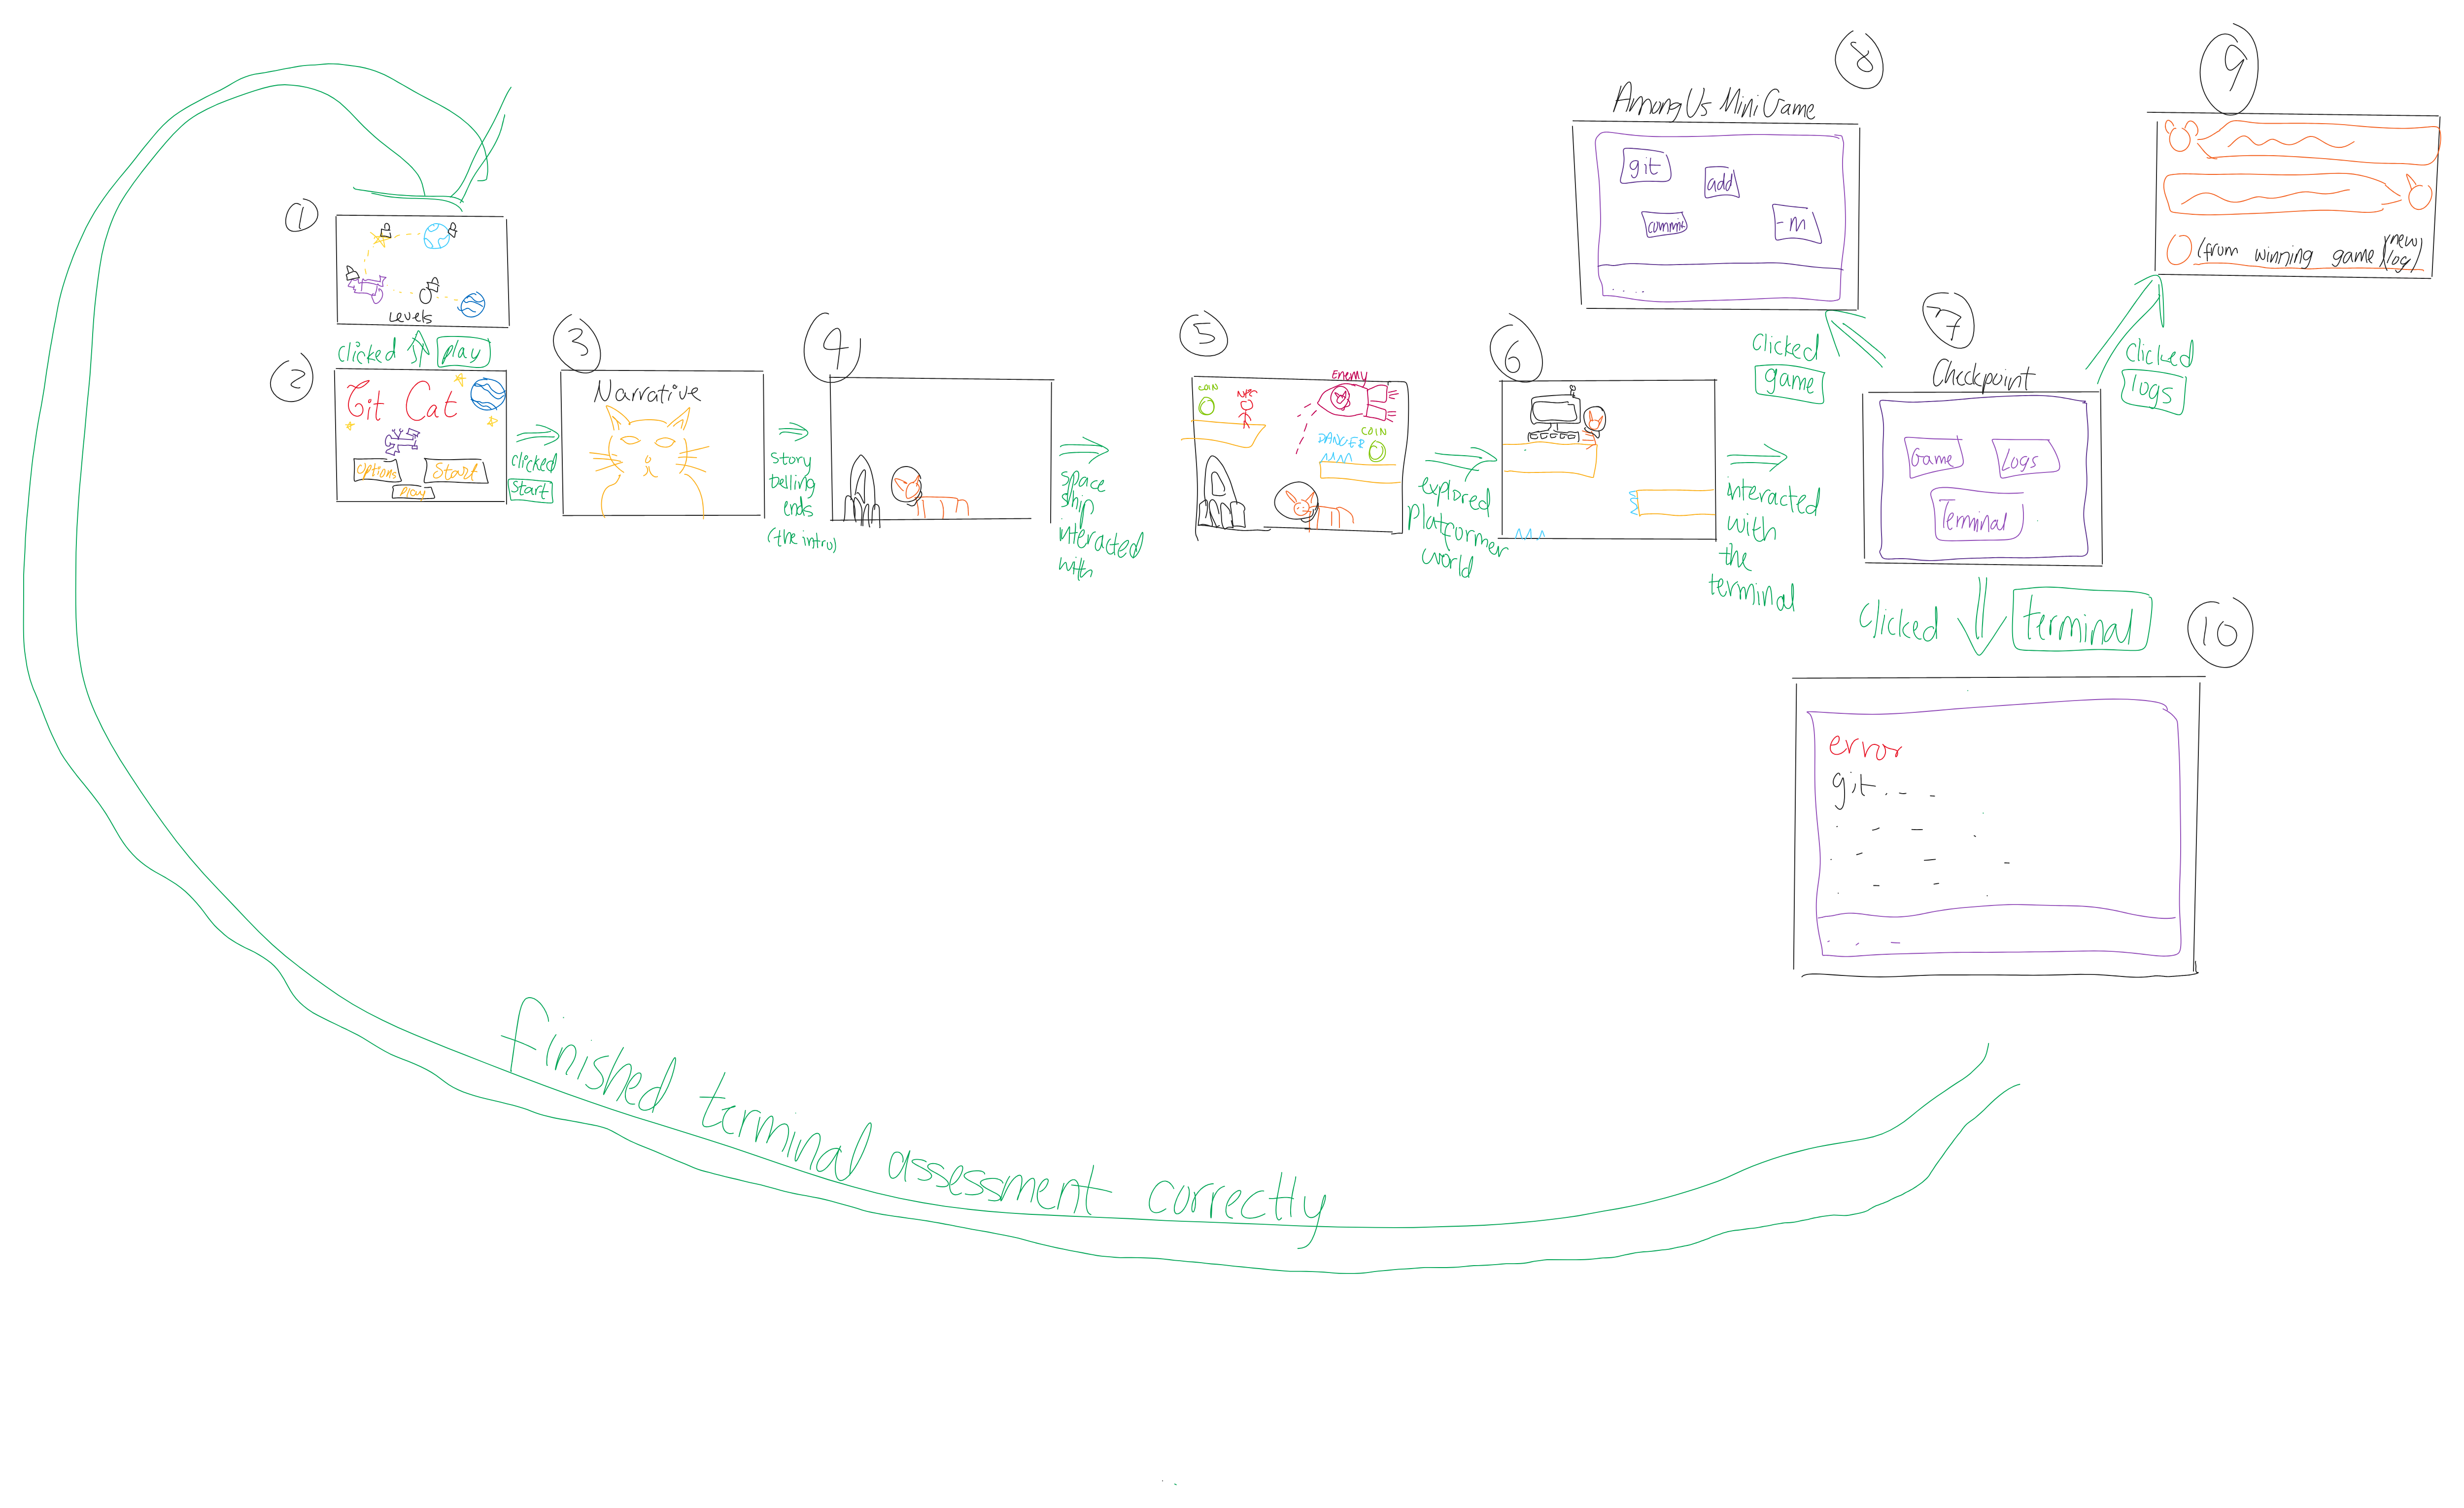 1
Levels
clicked play
2
Git Cat
options
Start
play
clicked
start
3
Narrative
story
telling
ends
(the intro)
4
space
ship
interacted
with
5
COIN
NPC
Enemy
DANGER
COIN
explored
platformer
world
6
interacted
with
the
terminal
7
Checkpoint
Game
Logs
Terminal
clicked
game
8
Among Us Mini Game
git
add
commit
-m
clicked
logs
9
(from winning game)(new
log)
clicked terminal
10
error
git . - -
finished terminal assessment correctly